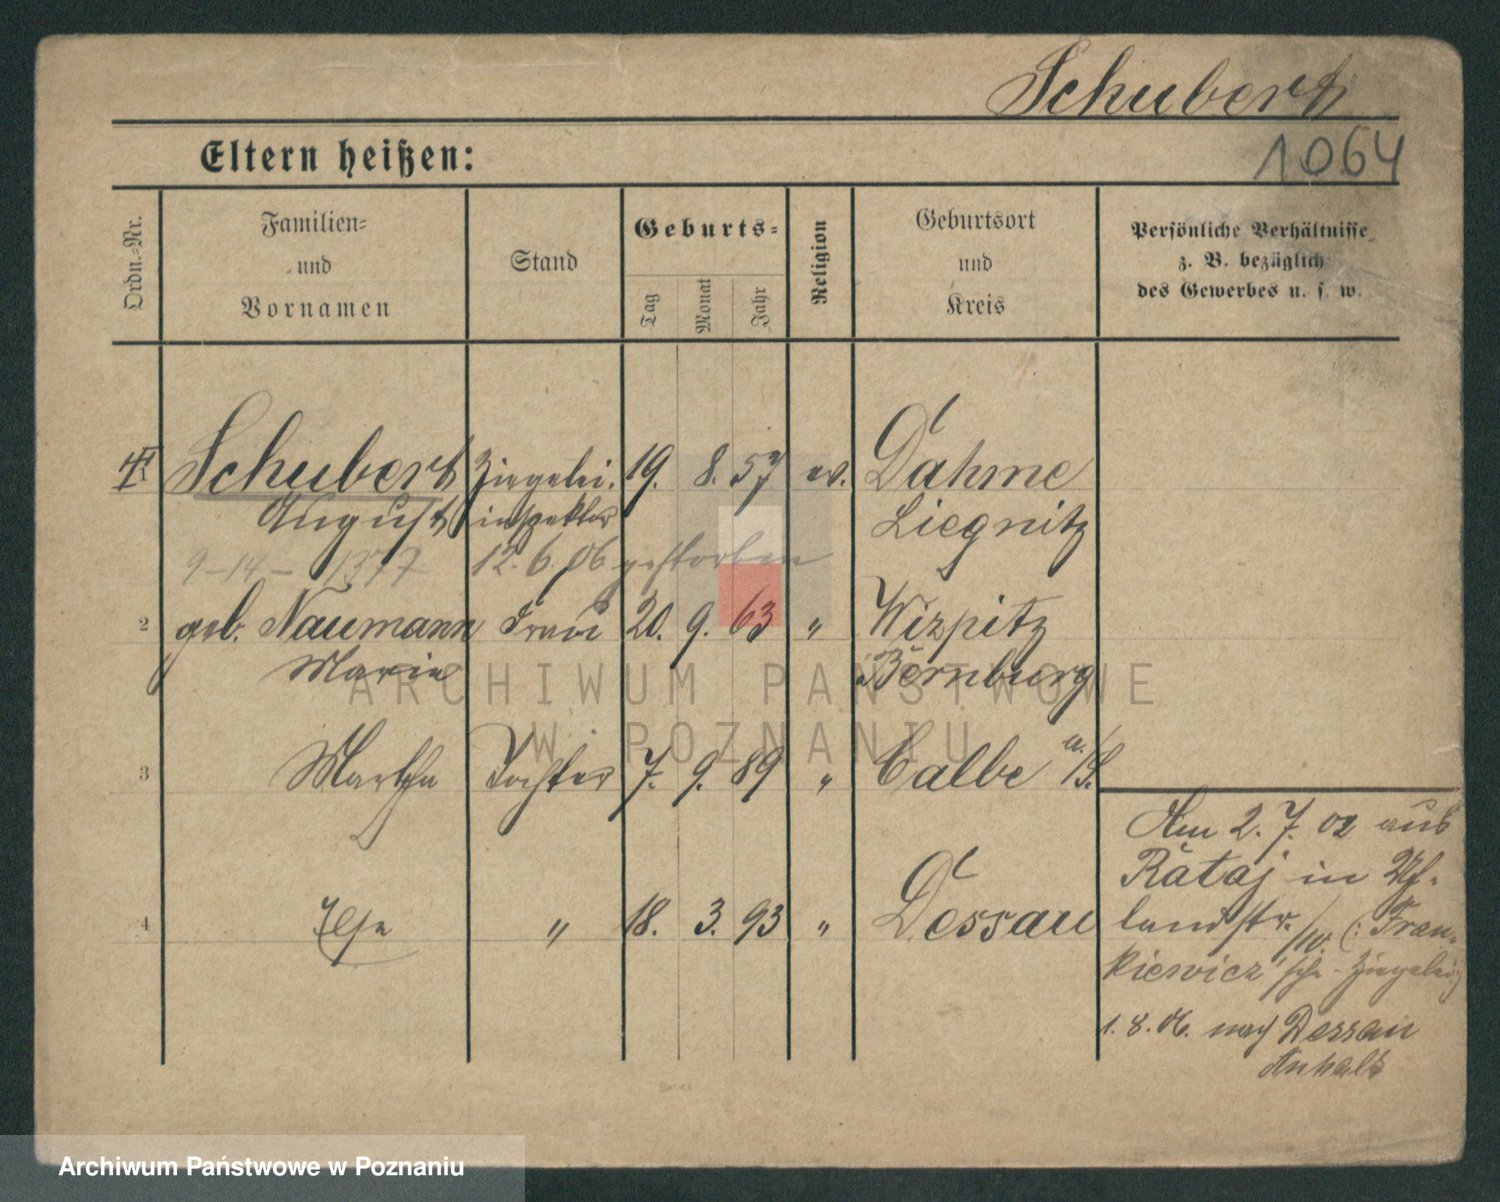 Schubert
1064
Eltern heißen:
Ordn.-Nr.
Familien-
und
Vornamen
Stand
Geburts-
Tag
Monat
Jahr
Religion
Geburtsort
und
Kreis
Persönliche Verhältnisse
z. B. bezüglich
des Gewerbes u. s. w.
Schubert Ziegelei- 19. 8. 57 ev. Dahme
August inspektor Liegnitz
9-14- 1377 12. 6. 06 gestorben
2 geb. Naumann Frau 20. 9. 63 " Wispitz
Marie Bernburg
3 Martha Tochter 7. 9. 89 " Calbe a./S.
4 Else " 18. 3. 93 " Dessau
Am 2. 7. 02 aus
Rataj in
landstr. /10. (: Fran-
kiewicz'sche Ziegelei:)
1. 8. 06. nach Dessau
Anhalt
ARCHIWUM PAŃSTWOWE
W POZNANIU
Archiwum Państwowe w Poznaniu